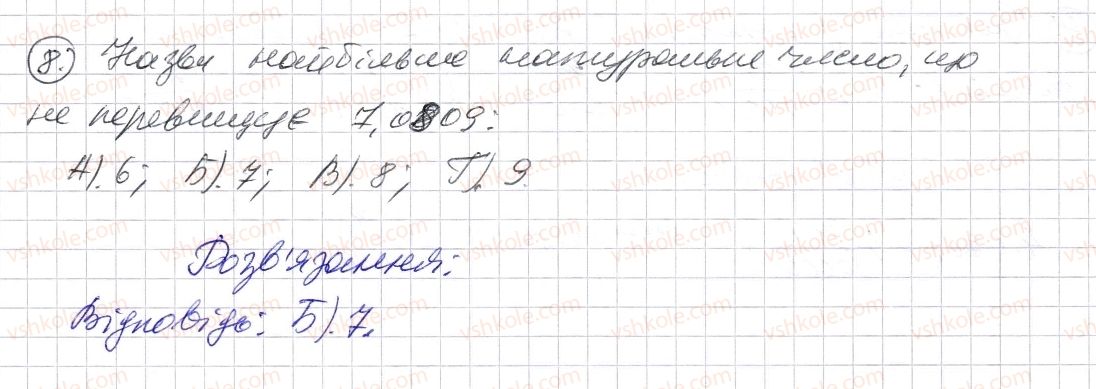 8. Назви найбільше натуральне число, що
не перевищує 7,0809:
А). 6; Б). 7; В). 8; Г). 9.
Розв'язання:
Відповідь: Б). 7.